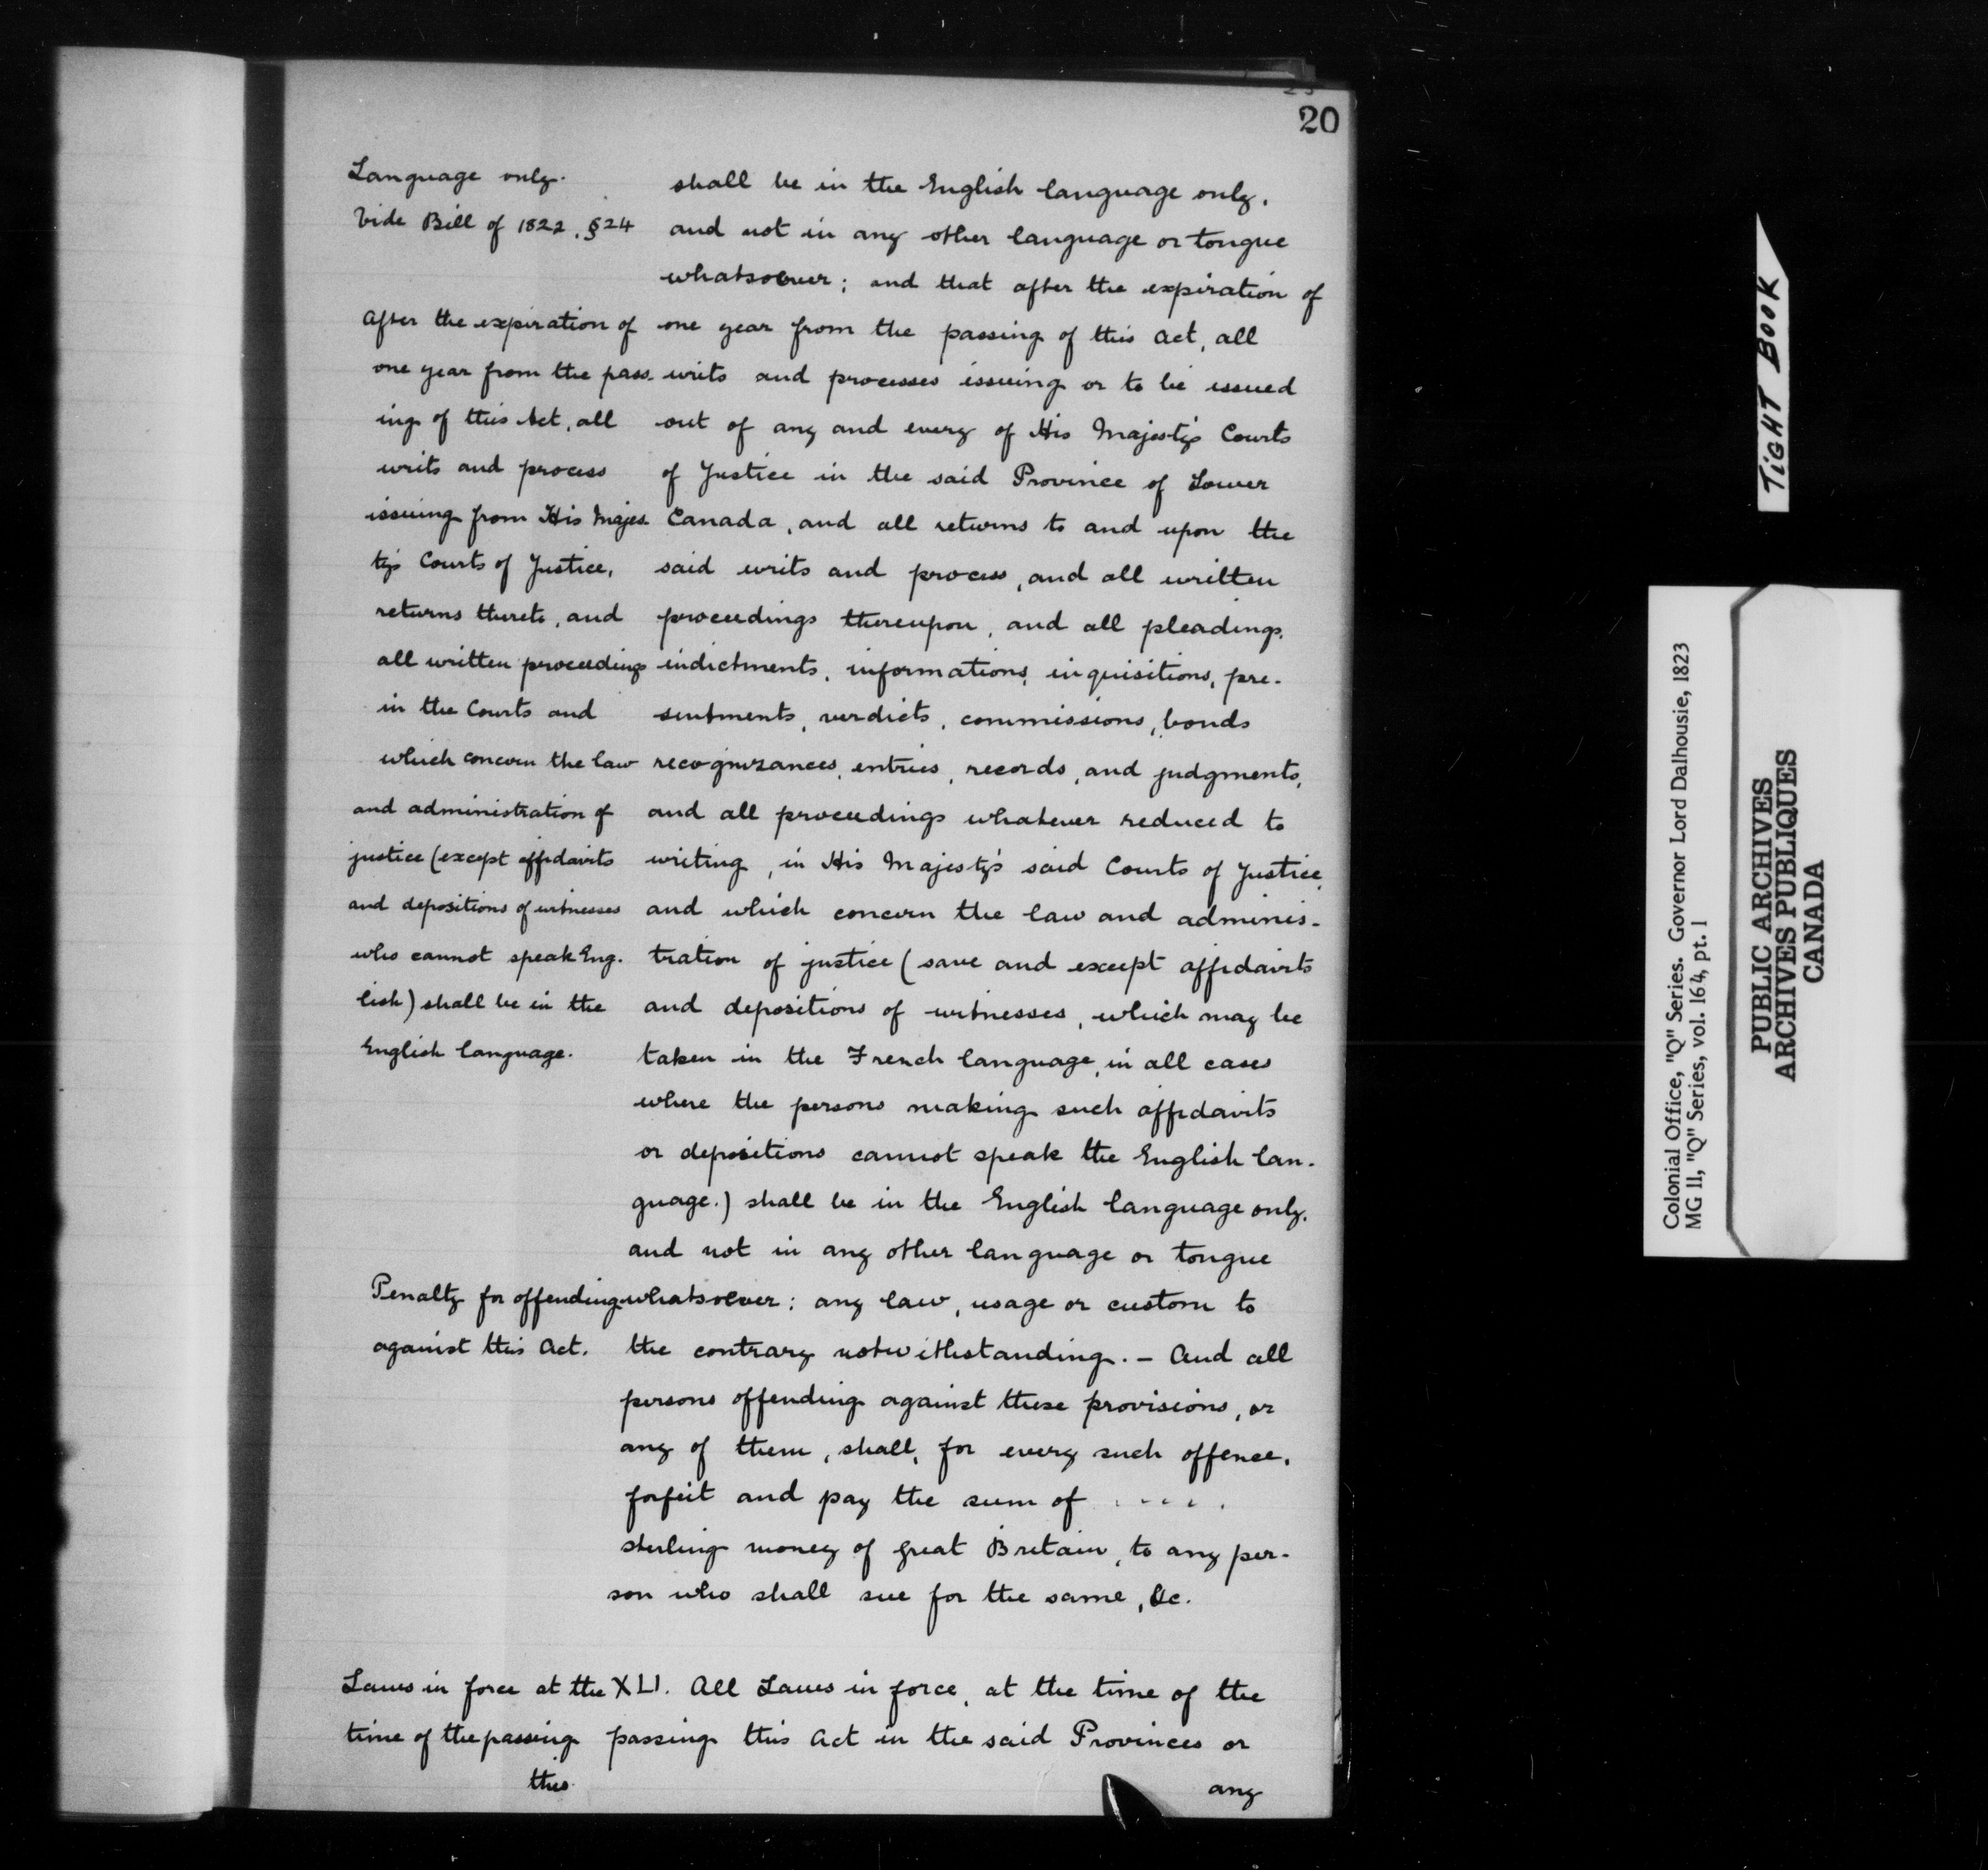 20
Language only.
Vide Bill of 1822. §24
After the expiration of
one year from the pass-
ing of this Act, all
writs and process
issuing from His Majes-
ty's Courts of Justice,
returns thereto, and
all written proceedings
in the Courts and
which concern the law
and administration of
justice (except affidavits
and depositions of witnesses
who cannot speak Eng-
lish) shall be in the
English language.
Penalty for offending
against this Act.
shall be in the English language only,
and not in any other language or tongue
whatsoever; and that after the expiration of
one year from the passing of this Act, all
writs and processes issuing or to be issued
out of any and every of His Majesty's Courts
of Justice in the said Province of Lower
Canada, and all returns to and upon the
said writs and process, and all written
proceedings thereupon, and all pleadings,
indictments, informations, inquisitions, pre-
sentments, verdicts, commissions, bonds
recognizances, entries, records, and judgments,
and all proceedings whatever reduced to
writing, in His Majesty's said Courts of Justice,
and which concern the law and adminis-
tration of justice (save and except affidavits
and depositions of witnesses, which may be
taken in the French language, in all cases
where the persons making such affidavits
or depositions cannot speak the English lan-
guage.) shall be in the English language only,
and not in any other language or tongue
whatsoever: any law, usage or custom to
the contrary notwithstanding. – And all
persons offending against these provisions, or
any of them, shall, for every such offence,
forfeit and pay the sum of . . . . .
sterling money of Great Britain, to any per-
son who shall sue for the same, &c.
Laws in force at the
time of the passing
this
XLI. All Laws in force, at the time of the
passing this Act in the said Provinces or
any
TIGHT BOOK
Colonial Office, "Q" Series. Governor Lord Dalhousie, 1823
MG 11, "Q" Series, vol. 164, pt. 1
PUBLIC ARCHIVES
ARCHIVES PUBLIQUES
CANADA